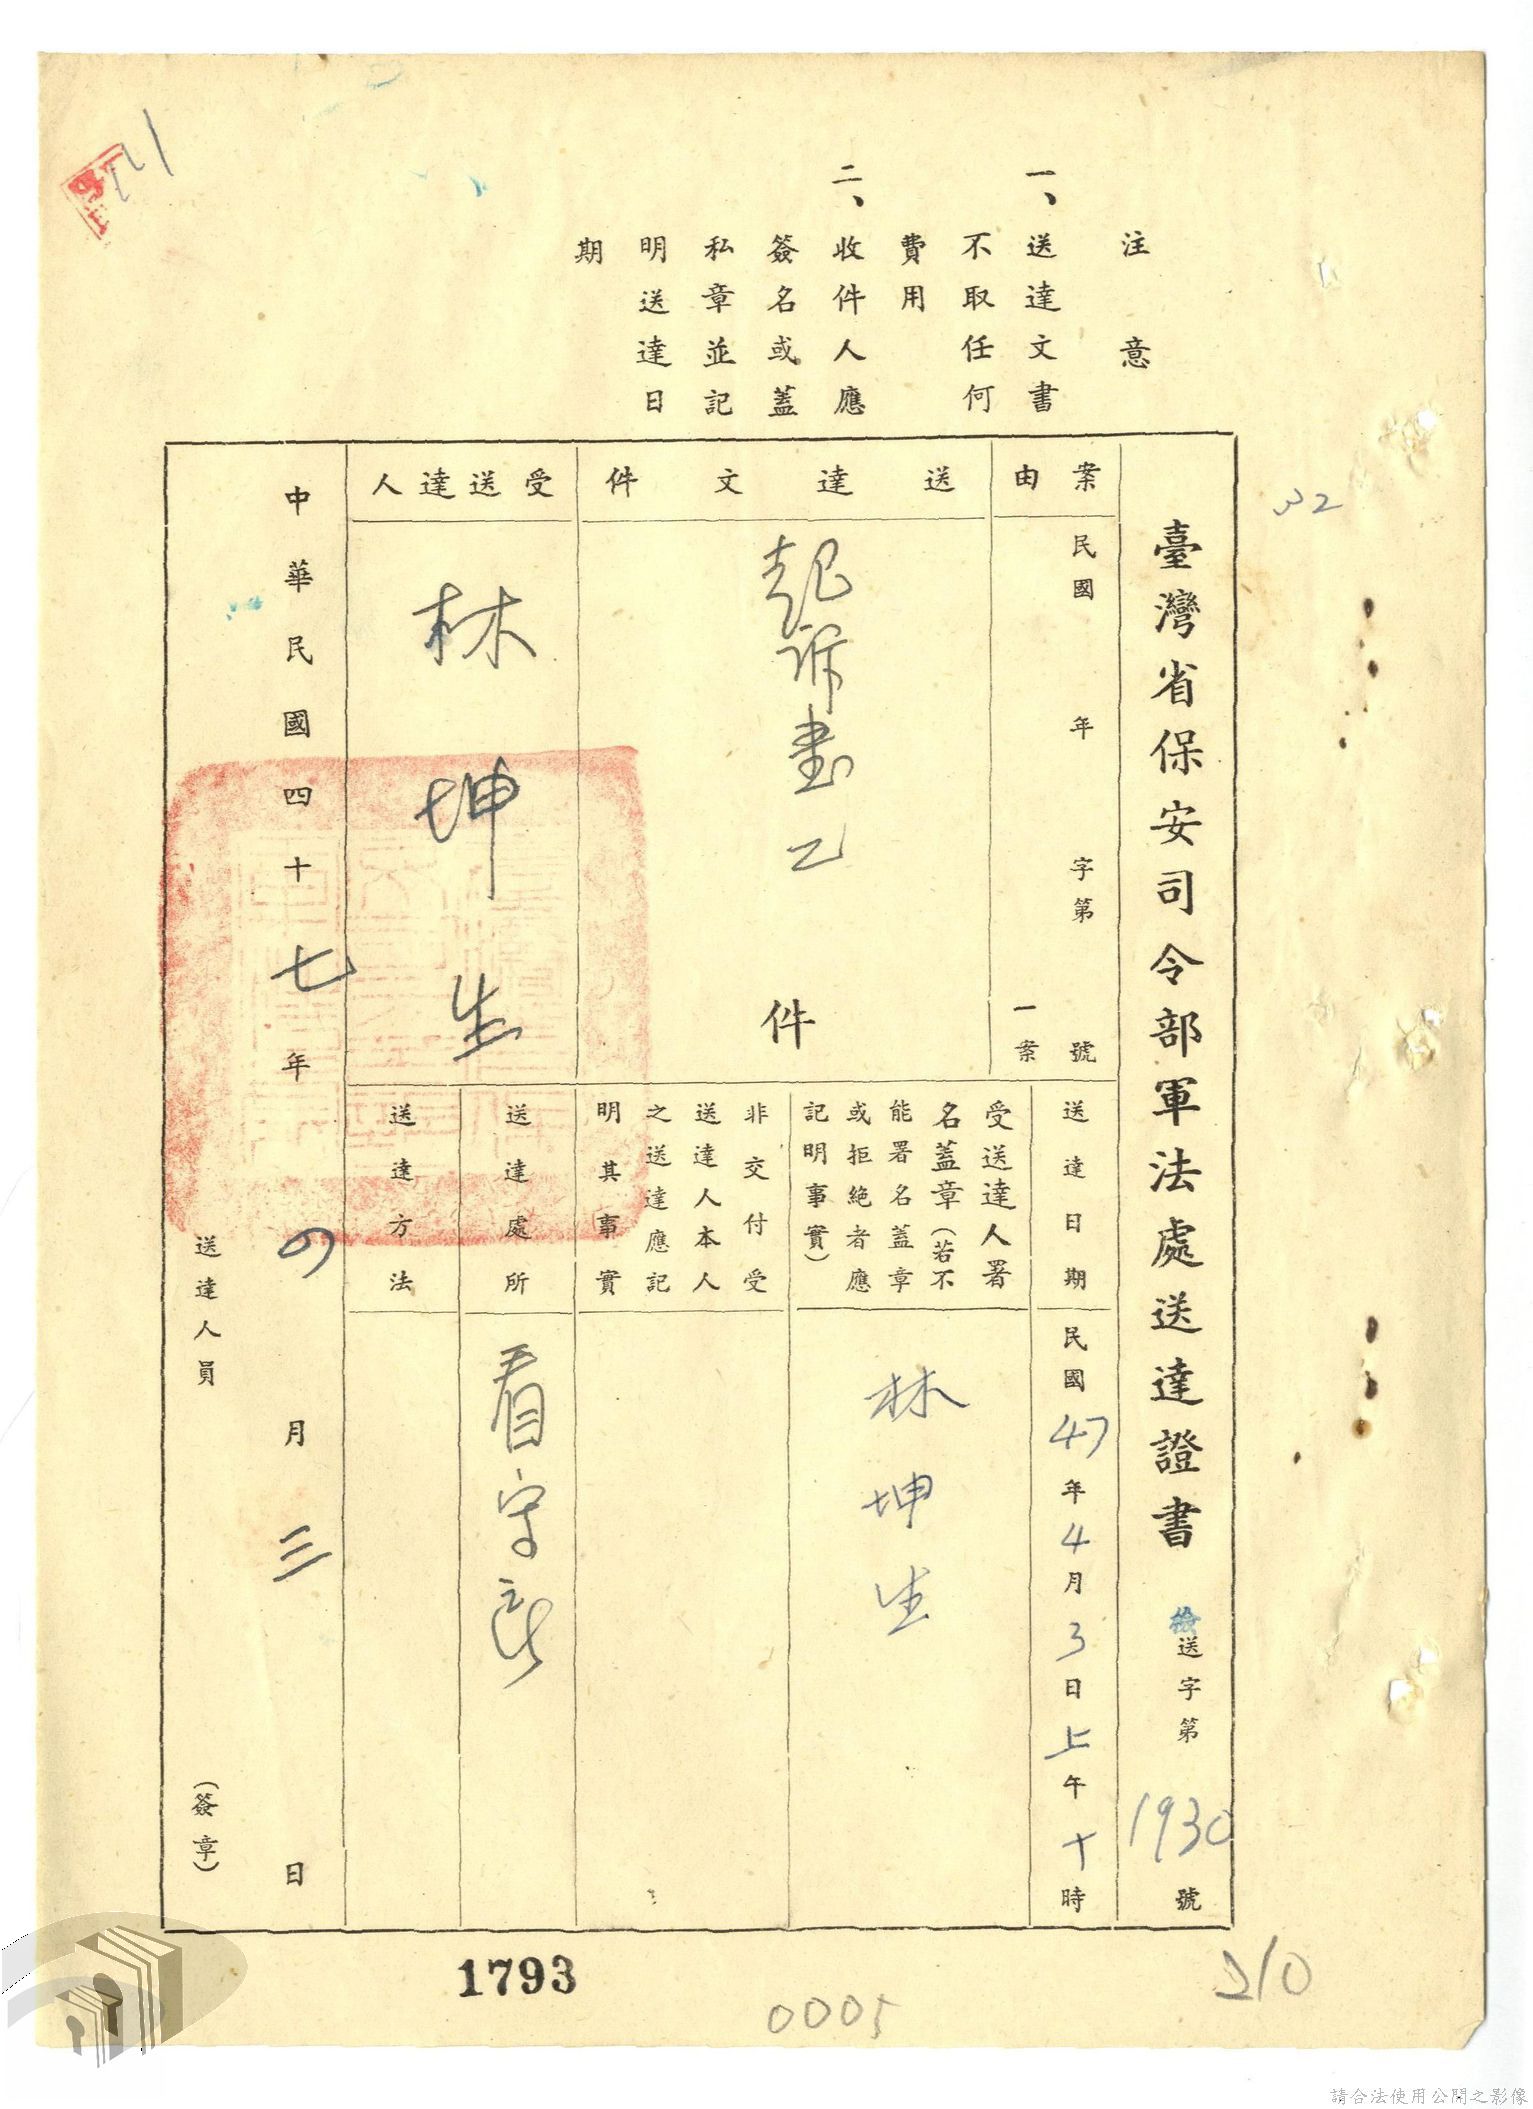 注意
一、送達文書
不取任何
費用
二、收件人應
簽名或蓋
私章並記
明送達日
期
臺灣省保安司令部軍法處送達證書 檢送字第1930號
案由
民國 年 字第 號
一案
送達文件
起訴書乙件
受送達人
林坤生
送達日期
民國47年4月3日上午十時
受送達人署
名蓋章(若不
能署名蓋章
或拒絕者應
記明事實)
林坤生
非交付受
送達人本人
之送達應記
明其事實
送達處所
看守所
送達方法
中華民國四十七年四月三日
送達人員 (簽章)
32
1793
0005
210
請合法使用公開之影像